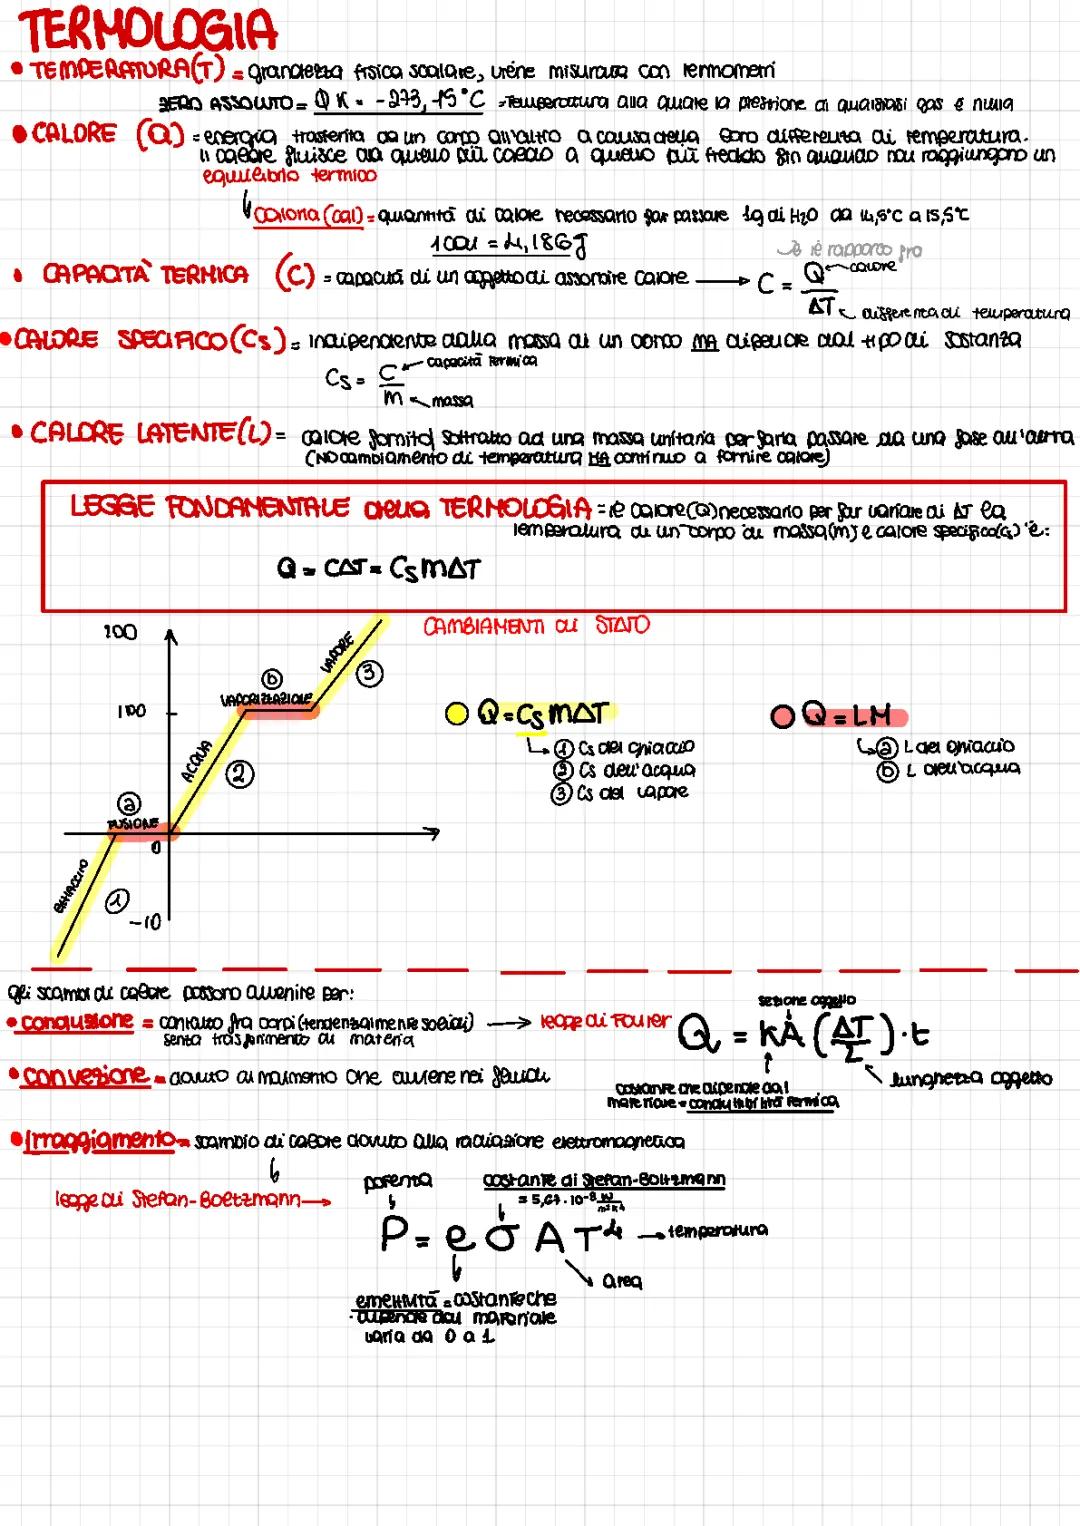 TERMOLOGIA
• TEMPERATURA(T) = grandezza fisica scalare, viene misurata con termometri
ZERO ASSOLUTO = 0 K = -273,15°C = Temperatura alla quale la pressione di qualsiasi gas è nulla
• CALORE (Q) = energia trasferita da un corpo all'altro a causa della loro differenza di temperatura.
il calore fluisce da quello più caldo a quello più freddo fin quando non raggiungono un
equilibrio termico
caloria (cal) = quantità di calore necessario far passare 1g di H₂O da 14,5°C a 15,5°C
1 cal = 4,186J
è il rapporto fra
• CAPACITÀ TERMICA (C) = capacità di un oggetto di assorbire calore → C = Q/ΔT
calore
differenza di temperatura
• CALORE SPECIFICO (Cs) = indipendente dalla massa di un corpo MA dipende dal tipo di sostanza
Cs = C/m
capacità termica
massa
• CALORE LATENTE (L) = calore fornito/sottratto ad una massa unitaria per farla passare da una fase all'altra
(NO cambiamento di temperatura MA continuo a fornire calore)
LEGGE FONDAMENTALE della TERMOLOGIA = il calore (Q) necessario per far variare di ΔT la
temperatura di un corpo di massa (m) e calore specifico (Cs) è:
Q = CΔT = CsmΔT
CAMBIAMENTI di STATO
200
100
0
-10
GHIACCIO
①
ⓐ
FUSIONE
ACQUA
②
ⓑ
VAPORIZZAZIONE
VAPORE
③
Q = Cs mΔT
① Cs del ghiaccio
② Cs dell'acqua
③ Cs del vapore
Q = LM
ⓐ L del ghiaccio
ⓑ L dell'acqua
gli scambi di calore possono avvenire per:
• conduzione = contatto fra corpi (tendenzialmente solidi) → legge di Fourier
senza trasferimento di materia
sezione oggetto
Q = kA (ΔT/L)·t
lunghezza oggetto
costante che dipende dal
materiale = conducibilità termica
• convezione = dovuto al movimento che avviene nei fluidi
• Irraggiamento = scambio di calore dovuto alla radiazione elettromagnetica
legge di Stefan-Boltzmann →
potenza
costante di Stefan-Boltzmann
= 5,67·10⁻⁸ W/m²K⁴
P = e σ A T⁴ → temperatura
area
emettività = costante che
dipende dal materiale
varia da 0 a 1